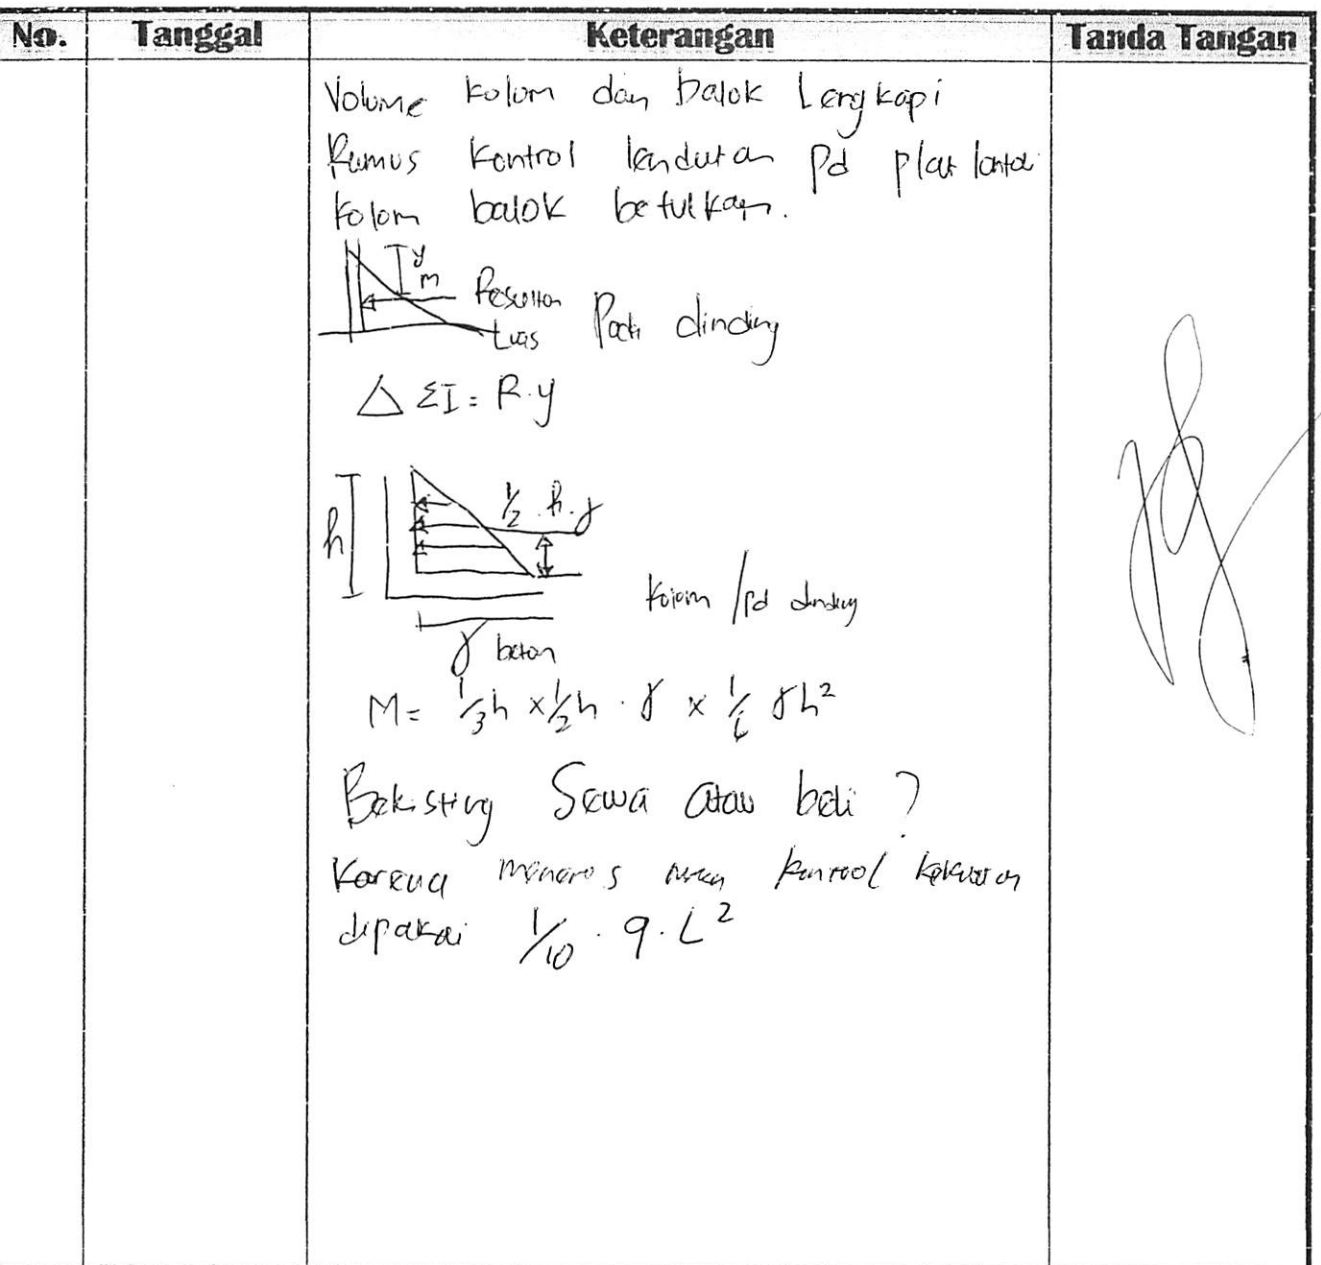 No. Tanggal Keterangan Tanda Tangan
Volume kolom dan balok Lengkapi
Rumus kontrol lendutan pd plat lantai
kolom balok betulkan.
y
m
Resultan
Luas Pada dinding
△ ΣI = R.y
h
1/2 . h . γ
kolom / pd dinding
γ beton
M = 1/3h x 1/2h . γ x 1/6 γh²
Bekisting Sewa atau beli ?
Karena menerus kontrol kekuatan
dipakai 1/10 . q . L²